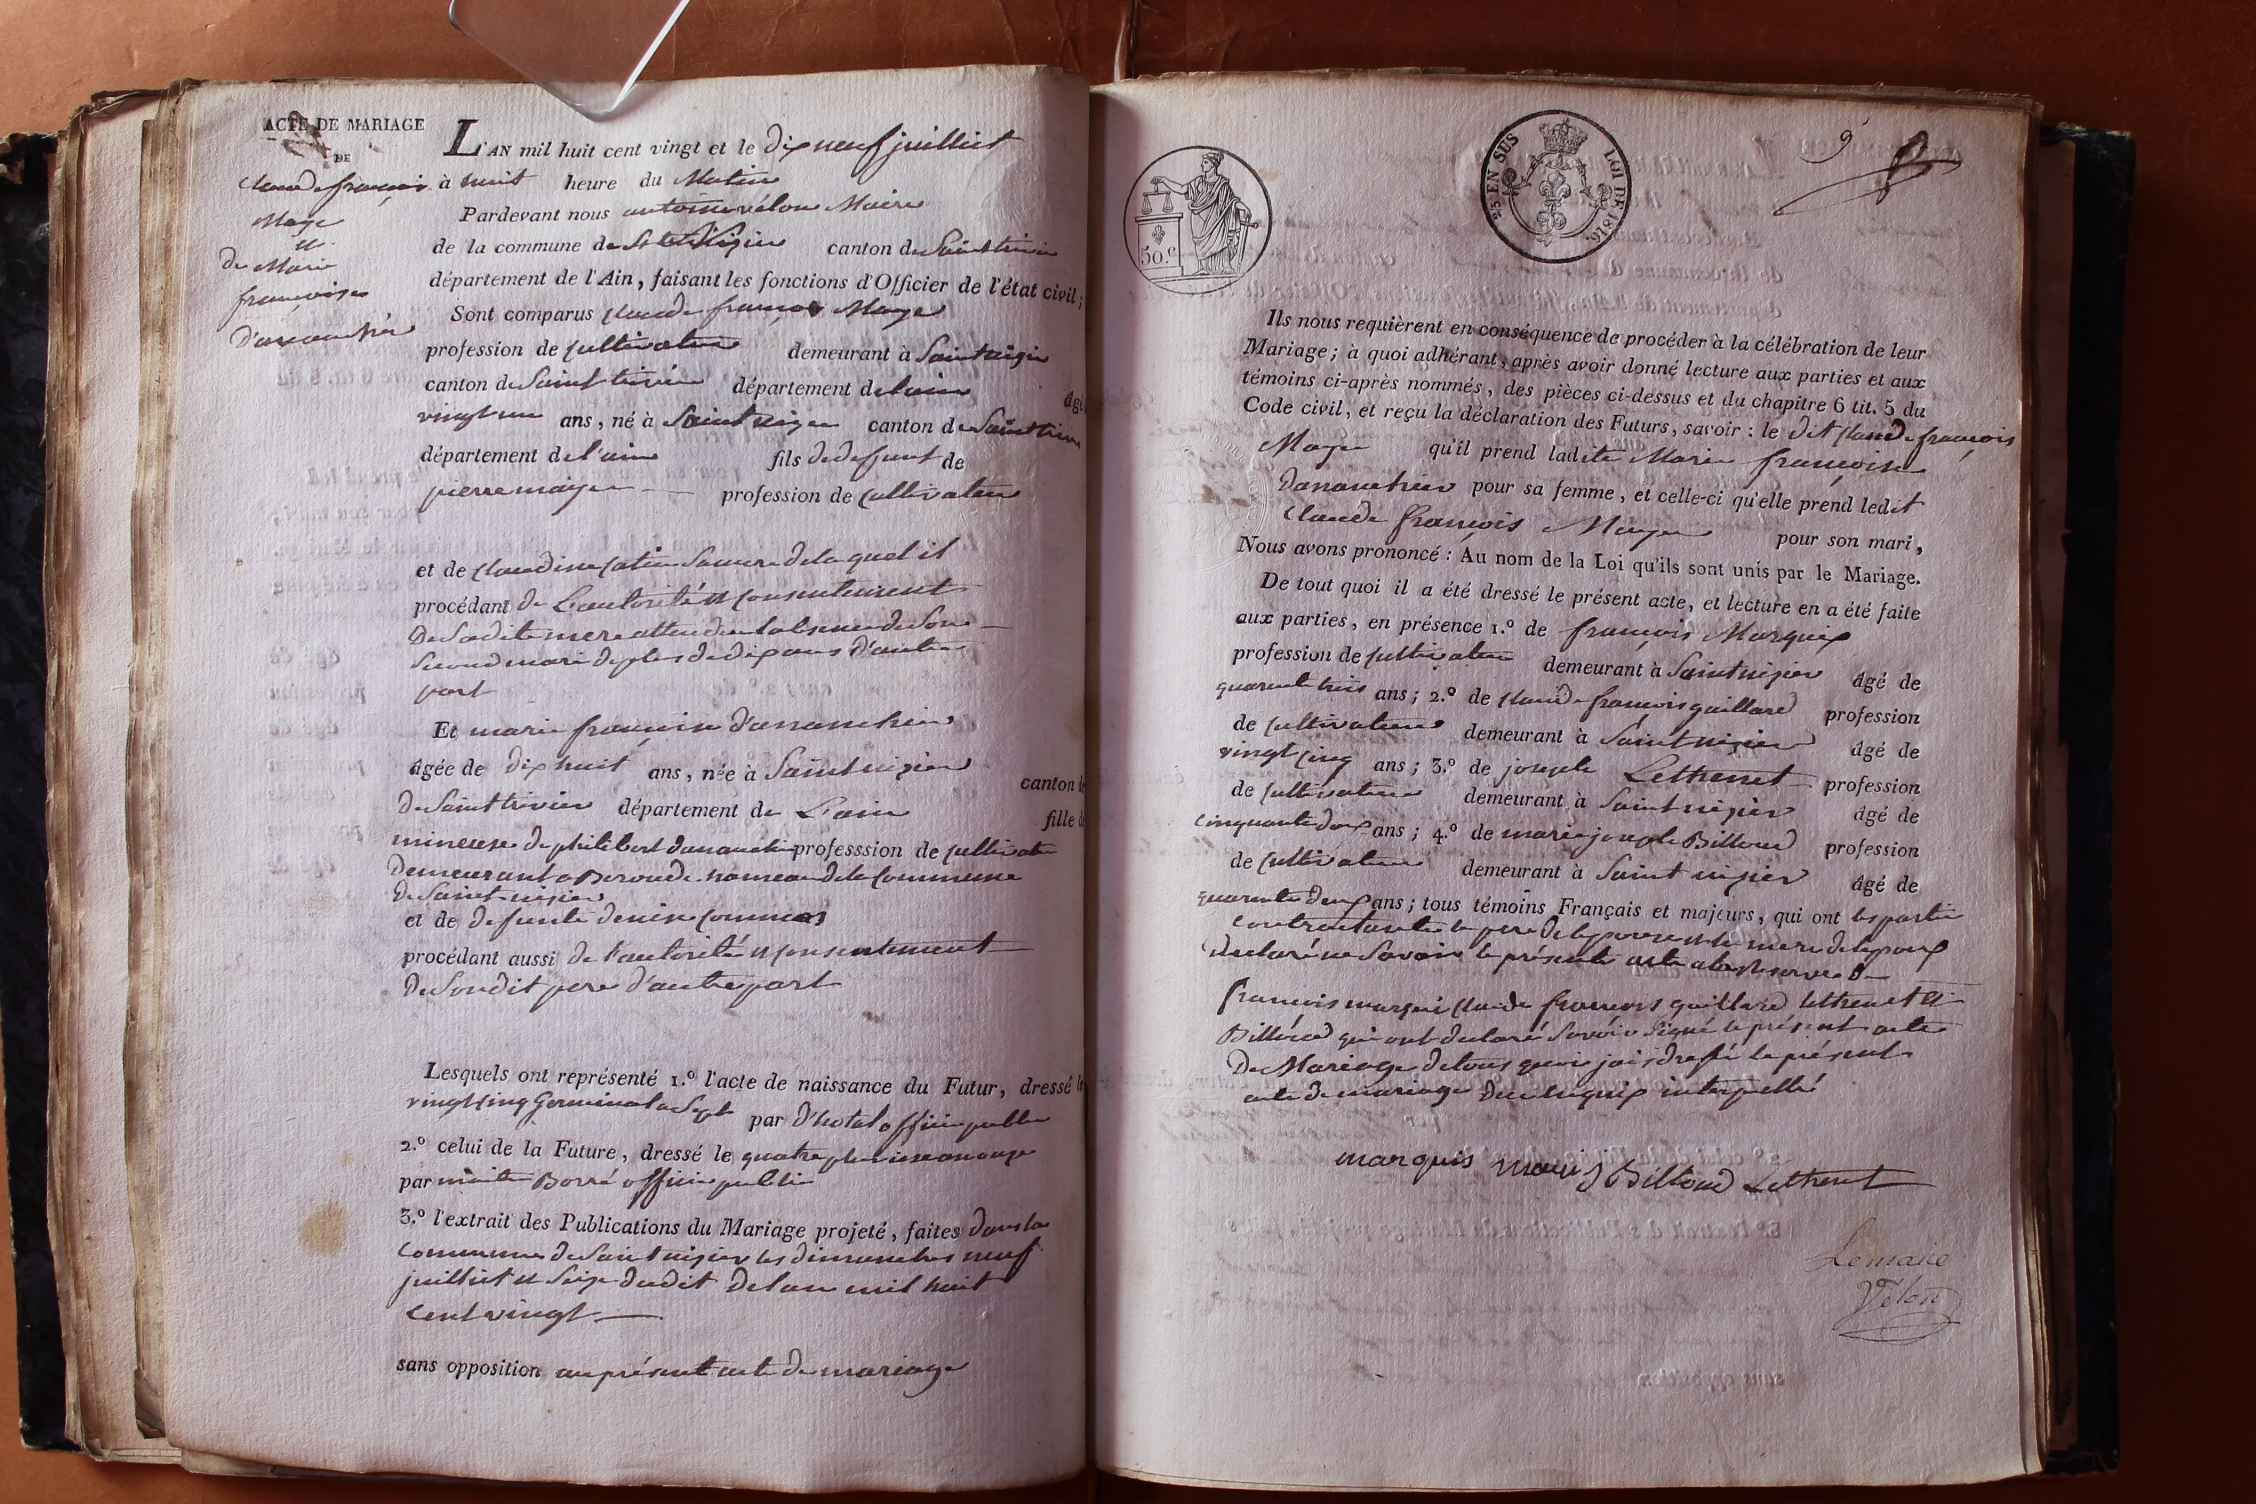 ACTE DE MARIAGE
DE
Claude françois
Maye
et
de Marie
françoise
Dananchier
L'AN mil huit cent vingt et le dix neuf juilliet
à huit heure du Matin
Pardevant nous antoine vélon Maire
de la commune de St Nizier canton de Saint trivier
département de l'Ain, faisant les fonctions d'Officier de l'état civil;
Sont comparus claude françois Maye
profession de cultivateur demeurant à Saint nizier
canton de Saint trivier département de lain âgé
vingt un ans, né à Saint nizier canton de Saint trivier
département de l'ain fils de defunt de
pierre maye profession de cultivateur
et de claudine catin Sa mere de laquel il
procédant de L'autorité et consentement
De Sadite mere attendu labsence de Son
Second mari deples de dix ans d'autre
part
Et marie françoise dananchier
âgée de dix huit ans, née à Saint nizier canton de
de Saint trivier département de L'ain fille de
mineure de philibert dananchier professsion de cultivateur
Demeurant a Beroude hameau de la commune
de Saint nizier
et de defunte denise
procédant aussi de l'autorité et consentement
De Sondit pere d'autre part
Lesquels ont représenté 1.º l'acte de naissance du Futur, dressé le
vingt cinq Germinal an Sept par D'hotel officier public
2.º celui de la Future, dressé le quatre pluviose an onze
par Borré officier public
3.º l'extrait des Publications du Mariage projeté, faites dans la
commune de Saint nizier les dimanches neuf
juilliet et Seize dudit de lan mil huit
cent vingt
sans opposition au présent acte de mariage
50.c
25 EN SUS LOI DE 1816.
9
Ils nous requièrent en conséquence de procéder à la célébration de leur
Mariage; à quoi adhérant, après avoir donné lecture aux parties et aux
témoins ci-après nommés, des pièces ci-dessus et du chapitre 6 tit. 5 du
Code civil, et reçu la déclaration des Futurs, savoir : le dit Claude françois
Maye qu'il prend ladite Marie françoise
Dananchier pour sa femme, et celle-ci qu'elle prend ledit
Claude françois Maye pour son mari,
Nous avons prononcé : Au nom de la Loi qu'ils sont unis par le Mariage.
De tout quoi il a été dressé le présent acte, et lecture en a été faite
aux parties, en présence 1.º de françois Marquis
profession de cultivateur demeurant à Saint nizier âgé de
quarente trois ans; 2.º de claude françois guillard profession
de cultivateur demeurant à Saint nizier âgé de
vingt cinq ans; 3.º de joseph Lethenet profession
de cultivateur demeurant à Saint nizier âgé de
cinquante deux ans; 4.º de marie joseph Billoud profession
de cultivateur demeurant à Saint nizier âgé de
quarente deux ans; tous témoins Français et majeurs, qui ont les partie
contractante le pere de lepouse et la mere de lepoux
declaré ne Savoir le présente acte a la reserve de
françois marqui claude françois guillard lethenet et
Billoud qui ont declaré Savoir Signé le présent acte
De Mariage de tous quoi jai dressé le présent
acte de mariage interpellé
marquis Billoud Lethenet
Lemaire
Vélon